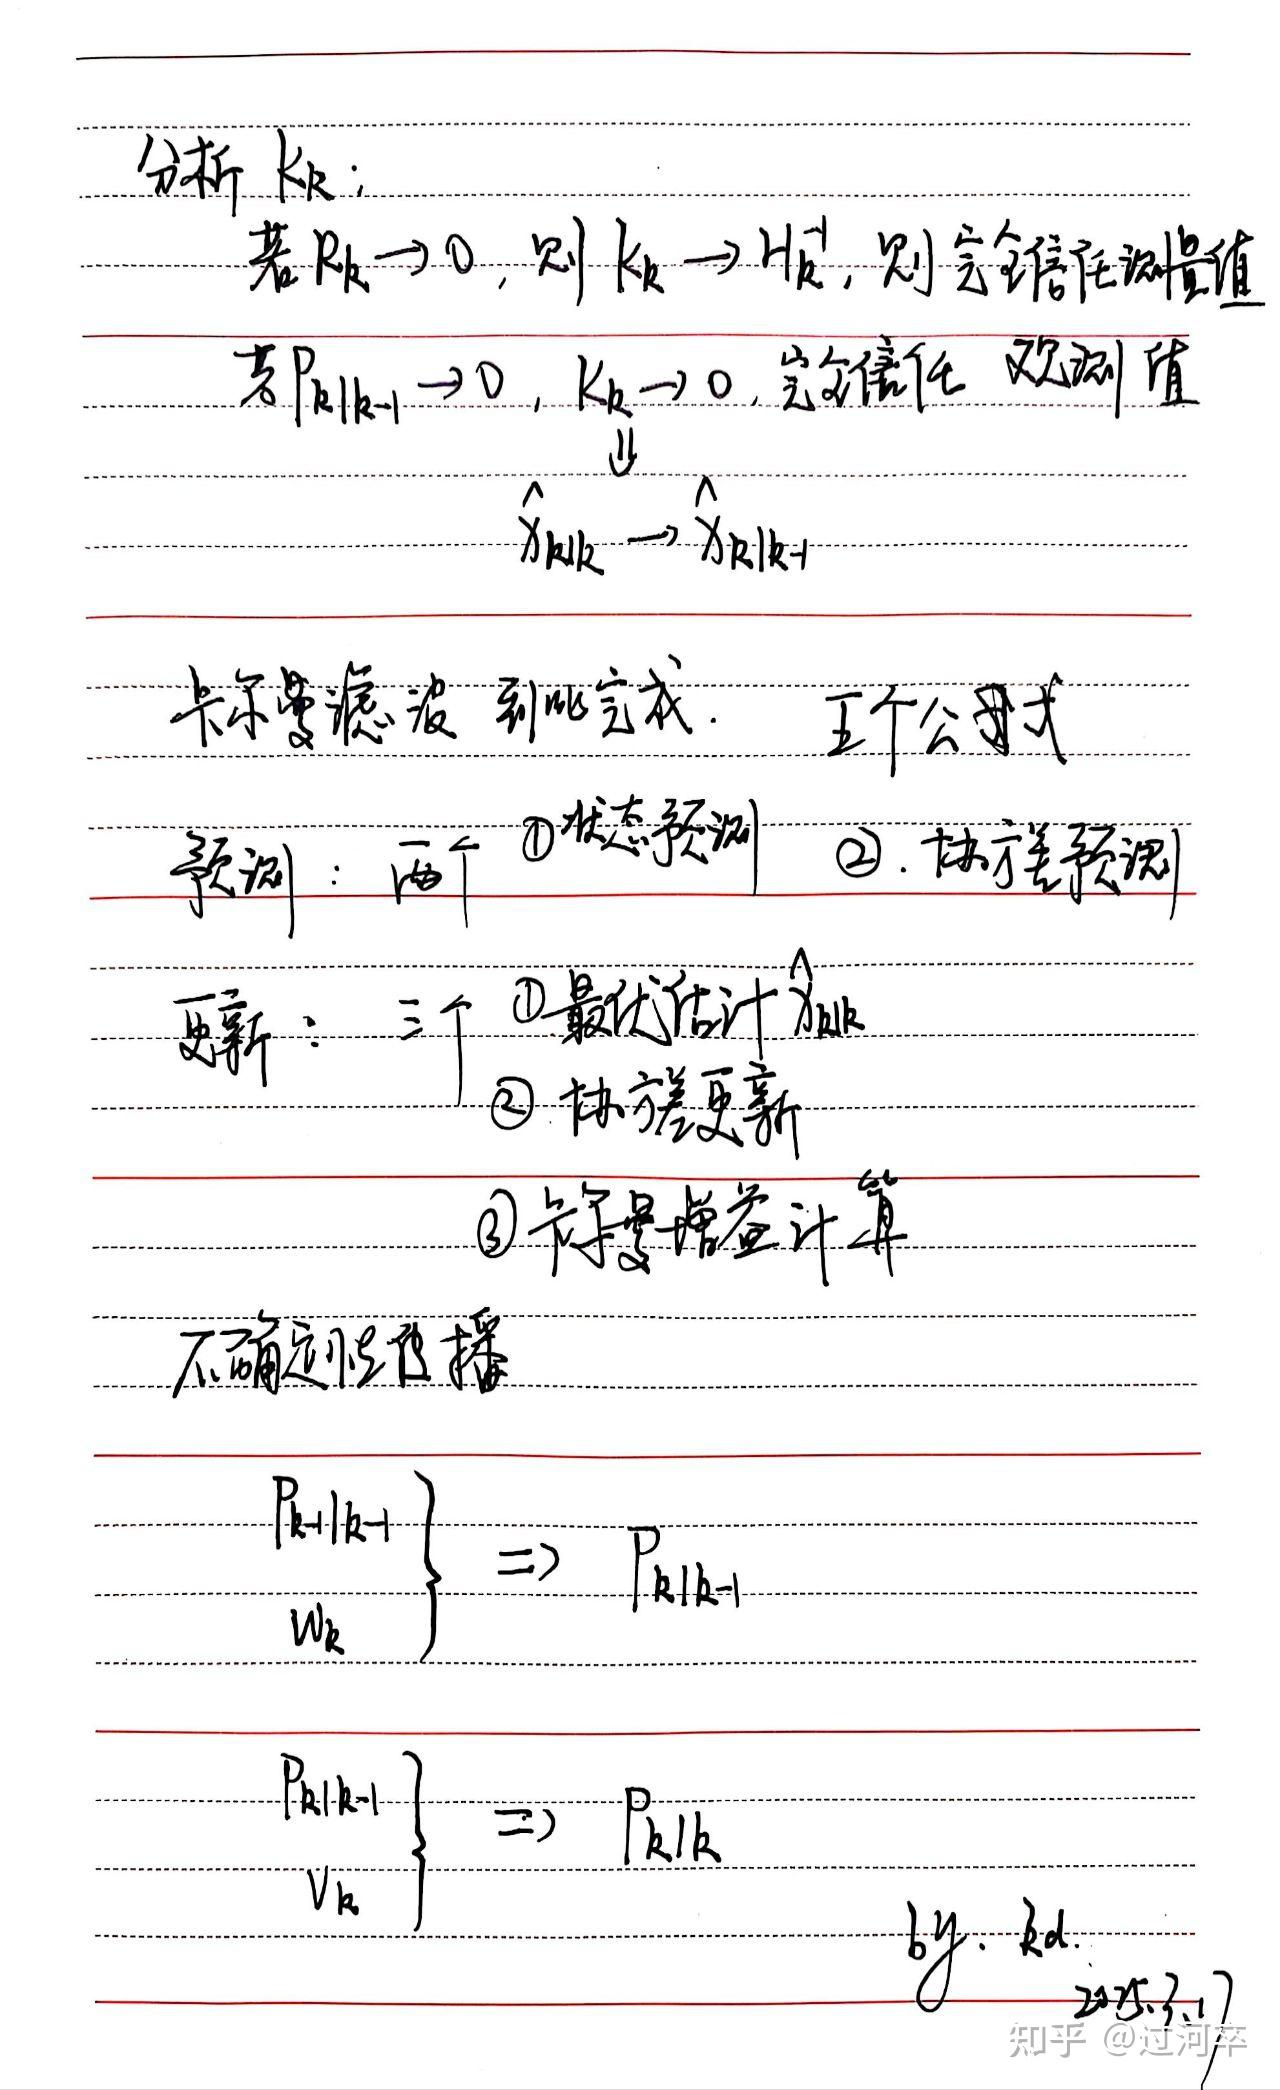 分析 K_k:
若 R_k → 0, 则 K_k → H_k^{-1}, 则完全信任测量值
若 P_{k|k-1} → 0, K_k → 0, 完全信任 观测值
⇓
x̂_{k|k} → x̂_{k|k-1}
卡尔曼滤波 到此完成. 五个公式
预测: 两个 ①状态预测 ②. 协方差预测
更新: 三个 ①最优估计 x̂_{k|k}
② 协方差更新
③卡尔曼增益计算
不确定性传播
P_{k-1|k-1}
w_k
} => P_{k|k-1}
P_{k|k-1}
v_k
} => P_{k|k}
by. kd.
2025.3.17
知乎 @过河卒